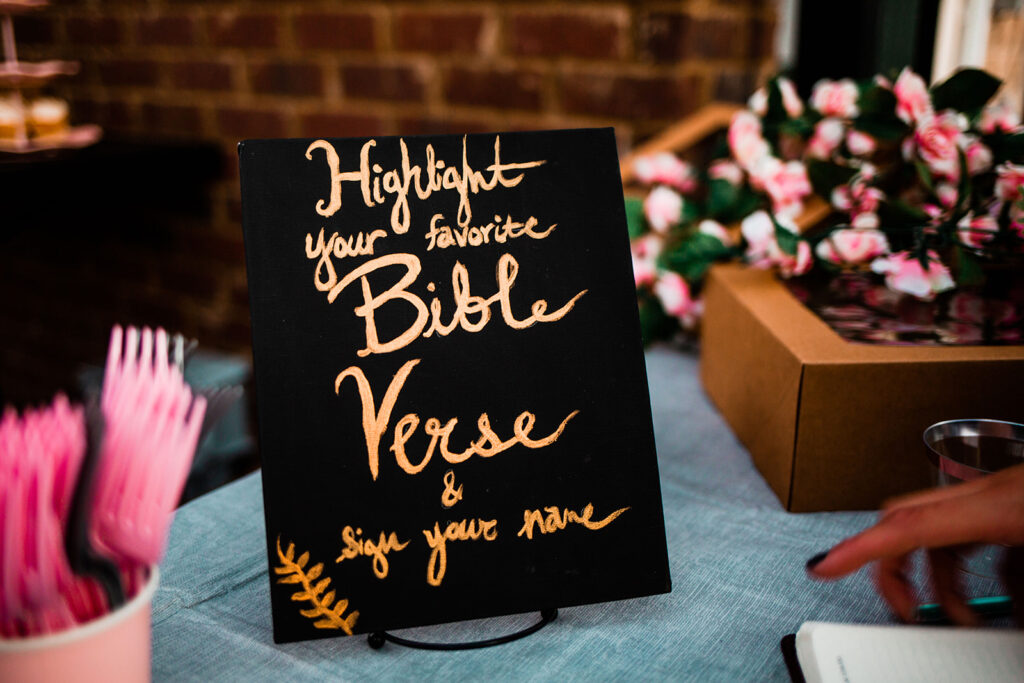 Highlight
your favorite
Bible
Verse
&
sign your name